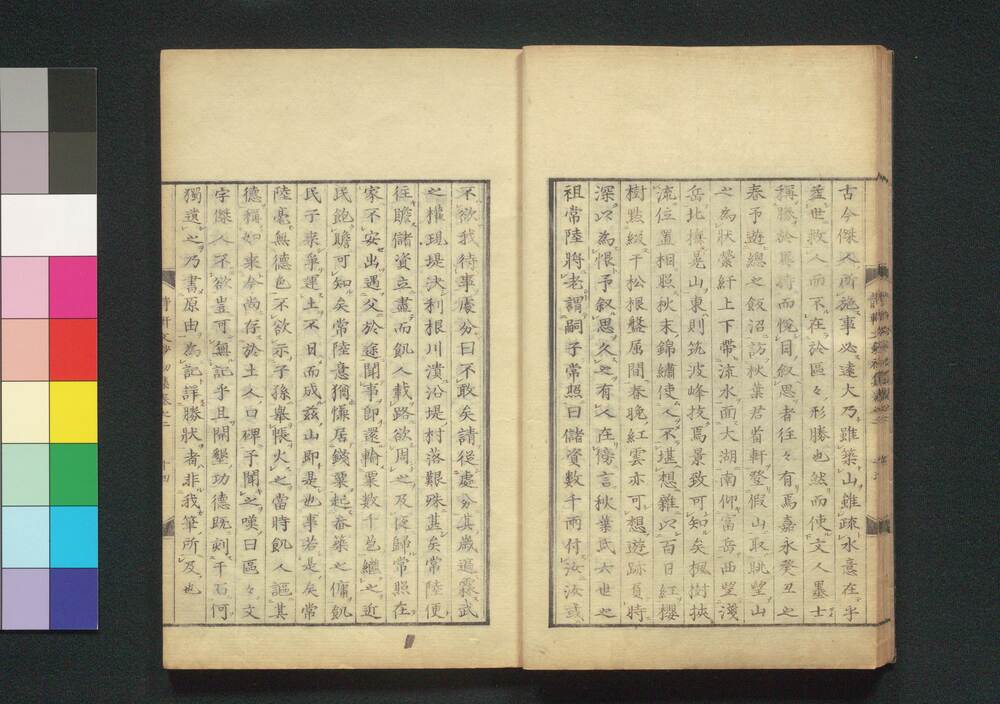 古今傑人所施事必遠大乃雖築山雖疏水意在乎
益世救人而不在於區々形勝也然而使文人墨士
稱勝於異時而悅目叙思者往々有焉嘉永癸丑之
春予遊總之飯沼訪秋葉君首軒登假山取眺望山
之為狀縈紆上下帶流水面大湖南仰富岳西望淺
岳北撫晃山東則筑波峰技焉景致可知矣楓樹挾
流位置相照秋末錦繡使人不堪想雜以百日紅櫻
樹點綴于松根盤屈間春晚紅雲亦可想遊跡負時
深以為恨予叙思久之有人在傍言秋葉氏大世之
祖常陸將老謂嗣子常照曰儲資數千兩付汝汝或
不欲我待事處分曰不敢矣請從處分其歲適霖武
之權現堤決利根川潰沿堤村落艱殊甚矣常陸便
往贍儲資立盡而飢人載路欲周之及從歸常照在
家不安出遇父於途聞事即還輸粟數千苞繼之近
民飽贍可知矣常陸意猶慊居錢粟起畚築之傭飢
民子來爭運土不日而成茲山即是也事若是矣常
陸毫無德色不欲示子孫舉帳火之當時飢人謳其
德稱如來奉尚存於土人口碑予聞之嘆曰區々文
字傑人不欲豈可無記乎且開墾功德既刻于石何
獨遺之乃書原由為記詳勝狀者非我筆所及也
十四